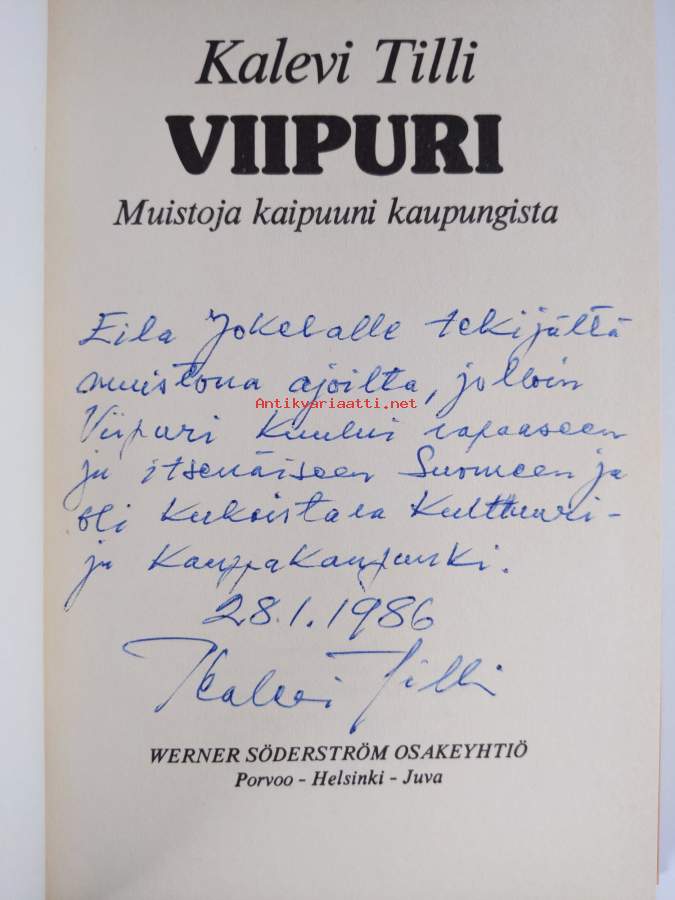 Kalevi Tilli
VIIPURI
Muistoja kaipuuni kaupungista
Eila Jokelalle tekijältä
muistona ajoilta, jolloin
Antikvariaatti.net
Viipuri kuului vapaaseen
ja itsenäiseen Suomeen ja
oli kukoistava kulttuuri-
ja kauppakaupunki.
28.1.1986
Kalevi Tilli
WERNER SÖDERSTRÖM OSAKEYHTIÖ
Porvoo - Helsinki - Juva